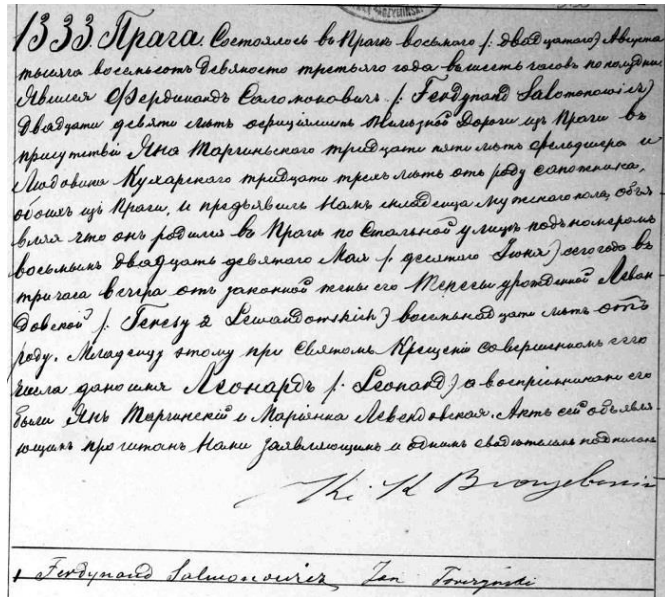 1333. Прага. Состоялось въ Праге восьмаго /: двадцатаго) Августа
тысяча восемьсотъ девяносто третьяго года въ шесть часовъ по полудни
Явился Фердинандъ Саломоновичъ /: Ferdynand Salomonowicz)
двадцати девяти летъ оффиціалистъ Железной Дороги изъ Праги въ
присутствіи Яна Таргиньскаго тридцати пяти летъ фельдшера и
Людовика Кухарскаго тридцати трехъ летъ отъ роду сапожника,
обоихъ изъ Праги, и предъявилъ Намъ младенца мужескаго пола, объя
вляя что онъ родился въ Праге по Стальной улице подъ номеромъ
восьмымъ двадцать девятаго Мая /: десятаго Іюня) сего года въ
три часа вечера отъ законной жены его Тересы урожденной Леван
довской /: Teresy z Lewandowskich) восемьнадцати летъ отъ
роду. Младенцу этому при Святомъ Крещеніи совершенномъ сего
числа дано имя Леонардъ /: Leonard) а воспріемниками его
были Янъ Таргинскій и Маріянна Левендовская. Актъ сей объявля
ющимъ прочитанъ Нами заявляющимъ и однимъ свидетелемъ подписанъ
Ferdynand Salmonowicz, Jan